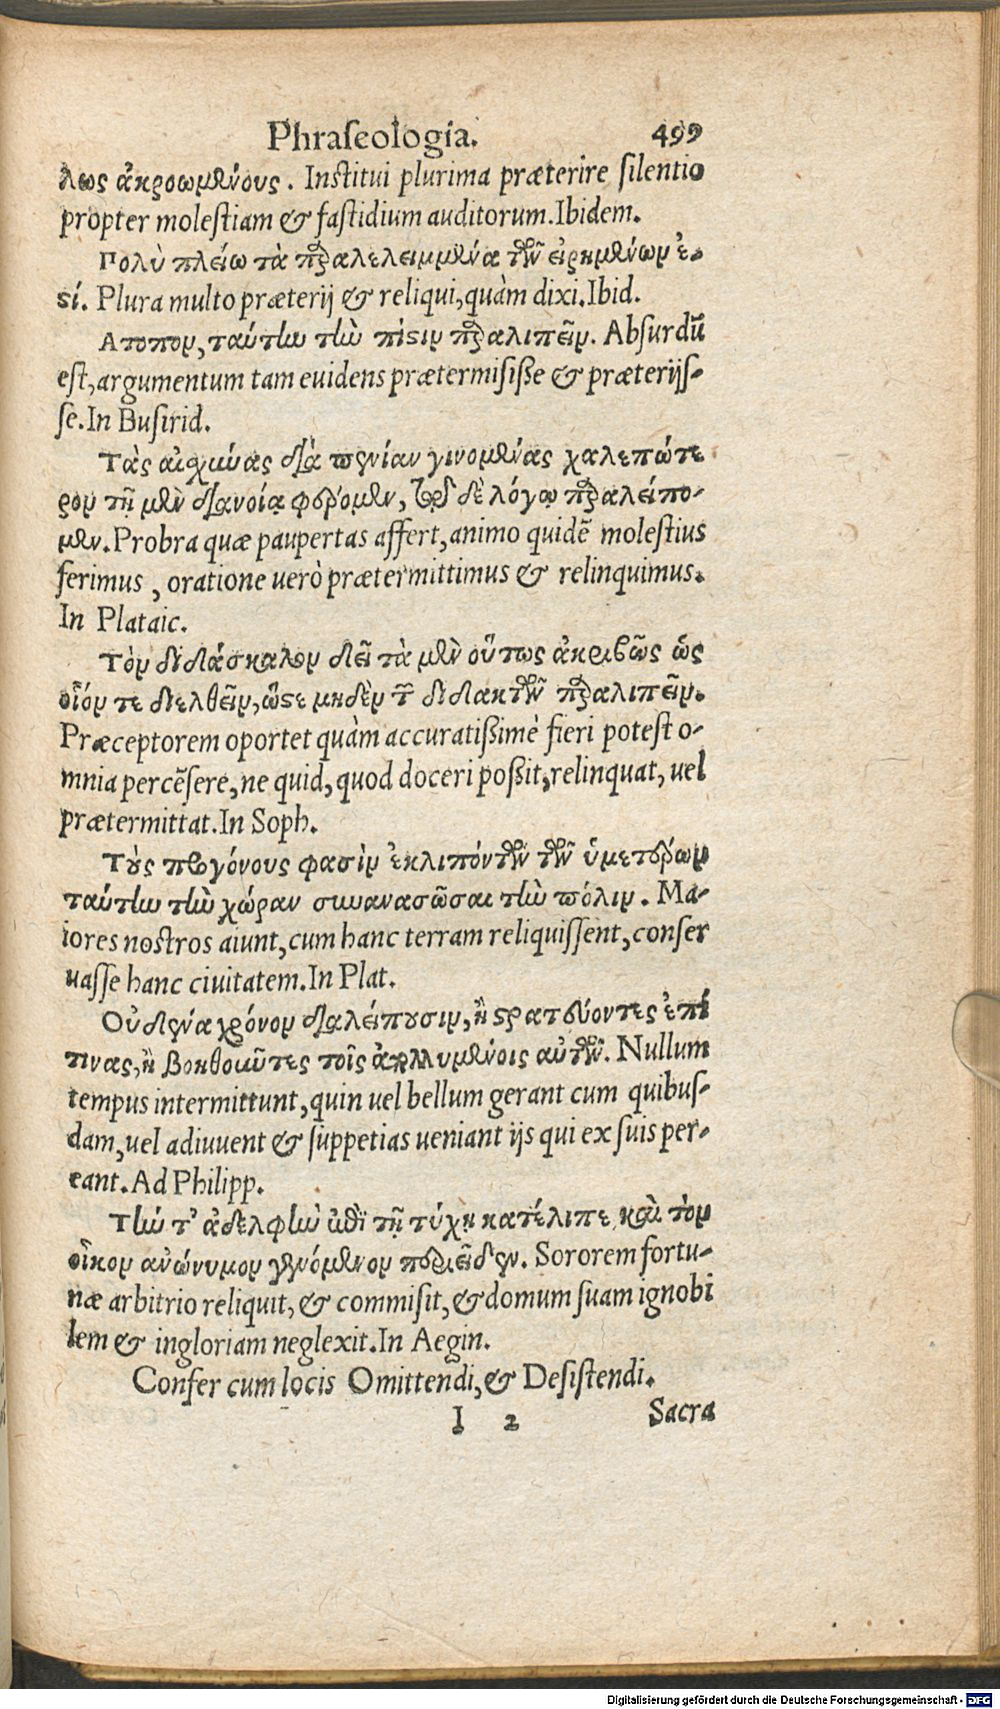 Phraseologia. 499
λως ἀκροωμένους. Institui plurima præterire silentio
propter molestiam & fastidium auditorum. Ibidem.
Πολὺ πλείω τὰ παραλελειμμένα τῶν εἰρημένων ἐ-
ςί. Plura multo præterij & reliqui, quàm dixi. Ibid.
Ατοπον, ταύτην τὴν πίςιν παραλιπεῖν. Absurdū
est, argumentum tam euidens prætermisiße & præterijs-
se. In Busirid.
Τὰς αἰσχύνας διὰ πενίαν γινομένας χαλεπώτε
ρον τῇ μὲν διανοίᾳ φέρομεν, τῷ δὲ λόγῳ παραλείπο-
μεν. Probra quæ paupertas affert, animo quidē molestius
ferimus, oratione uerò prætermittimus & relinquimus.
In Plataic.
Τὸν διδάσκαλον δεῖ τὰ μὲν οὕτως ἀκριβῶς ὡς
οἷόν τε διελθεῖν, ὥςε μηδὲν τῶν διδακτῶν παραλιπεῖν.
Præceptorem oportet quàm accuratißimè fieri potest o-
mnia percēsere, ne quid, quod doceri poßit, relinquat, uel
prætermittat. In Soph.
Τοὺς προγόνους φασὶν ἐκλιπόντων τῶν ὑμετέρων
ταύτην τὴν χώραν συνανασῶσαι τὴν πόλιν. Ma-
iores nostros aiunt, cum hanc terram reliquissent, conser
uasse hanc ciuitatem. In Plat.
Οὐδένα χρόνον διαλείπουσιν, ἢ ςρατεύοντες ἐπί
τινας, ἢ βοηθοῦντες τοῖς ἀπολλυμένοις αὐτῶν. Nullum
tempus intermittunt, quin uel bellum gerant cum quibus-
dam, uel adiuuent & suppetias ueniant ijs qui ex suis per-
eant. Ad Philipp.
Τὴν τ' ἀδελφὴν ἐπὶ τῇ τύχῃ κατέλιπε, καὶ τὸν
οἶκον ἀνώνυμον γενόμενον περιεῖδεν. Sororem fortu-
næ arbitrio reliquit, & commisit, & domum suam ignobi
lem & ingloriam neglexit. In Aegin.
Confer cum locis Omittendi, & Desistendi.
I 2 Sacra
Digitalisierung gefördert durch die Deutsche Forschungsgemeinschaft - DFG